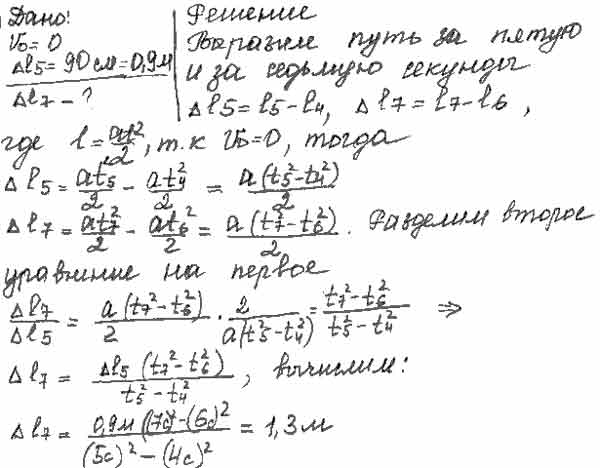 Дано:
V₀ = 0
Δl₅ = 90 см = 0,9 м
Δl₇ – ?
Решение
Выразим путь за пятую
и за седьмую секунды
Δl₅ = l₅ – l₄, Δl₇ = l₇ – l₆,
где l = at²/2, т.к V₀ = 0, тогда
Δl₅ = at₅²/2 – at₄²/2 = a(t₅² – t₄²)/2
Δl₇ = at₇²/2 – at₆²/2 = a(t₇² – t₆²)/2. Разделим второе
уравнение на первое
Δl₇/Δl₅ = a(t₇² – t₆²)/2 · 2/a(t₅² – t₄²) = t₇² – t₆²/t₅² – t₄² ⇒
Δl₇ = Δl₅(t₇² – t₆²)/t₅² – t₄², вычислим:
Δl₇ = 0,9м((7с)² – (6с)²/(5с)² – (4с)² = 1,3 м